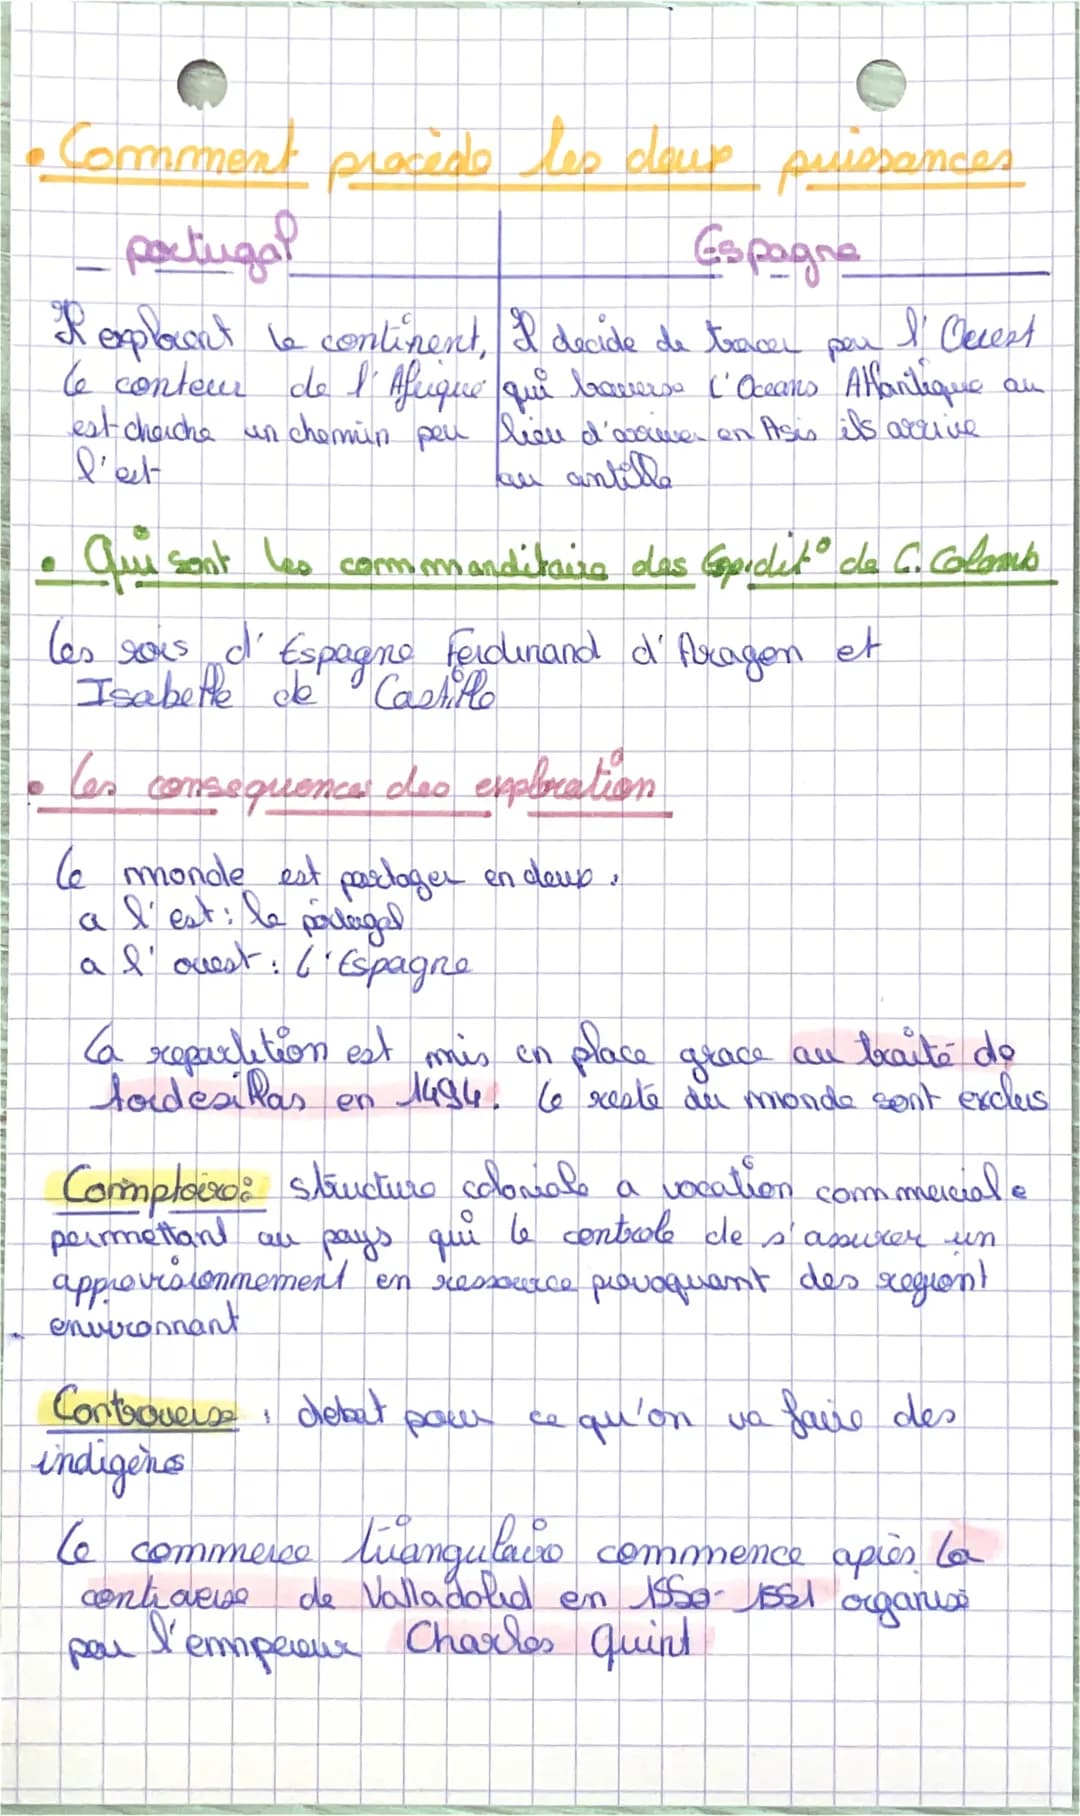 • Commment procède les deux puissances
portugal
Espagne
Il explorent le continent,
le conteur de l'Afrique
est cherche un chemin par
l'est
Il decide de tracer par l'Ouest
qui traverse l'Oceans Atlantique au
lieu d'arriver en Asis ils arrive
au antille
• Qui sont les commmanditaire des Expidit° de C. Colomb
les rois d'Espagne Ferdinand d'Aragon et
Isabelle de Castille
• les consequences des exploration
le monde est partager en deux :
a l'est : le portugal
a l'ouest : l'Espagne
la repartition est mis en place grace au traité de
tordesillas en 1494. le reste du monde sont exclus
Comptoire : structure coloniale a vocation commerciale
permettant au pays qui le controle de s'assurer un
approvisionnmement en ressource provoquant des regiont
environnant
Controverse : debat pour ce qu'on va faire des
indigènes
le commerce triangulaire commmence après la
controverse de Valladolid en 1550-1551 organisé
par l'empereur Charles Quint